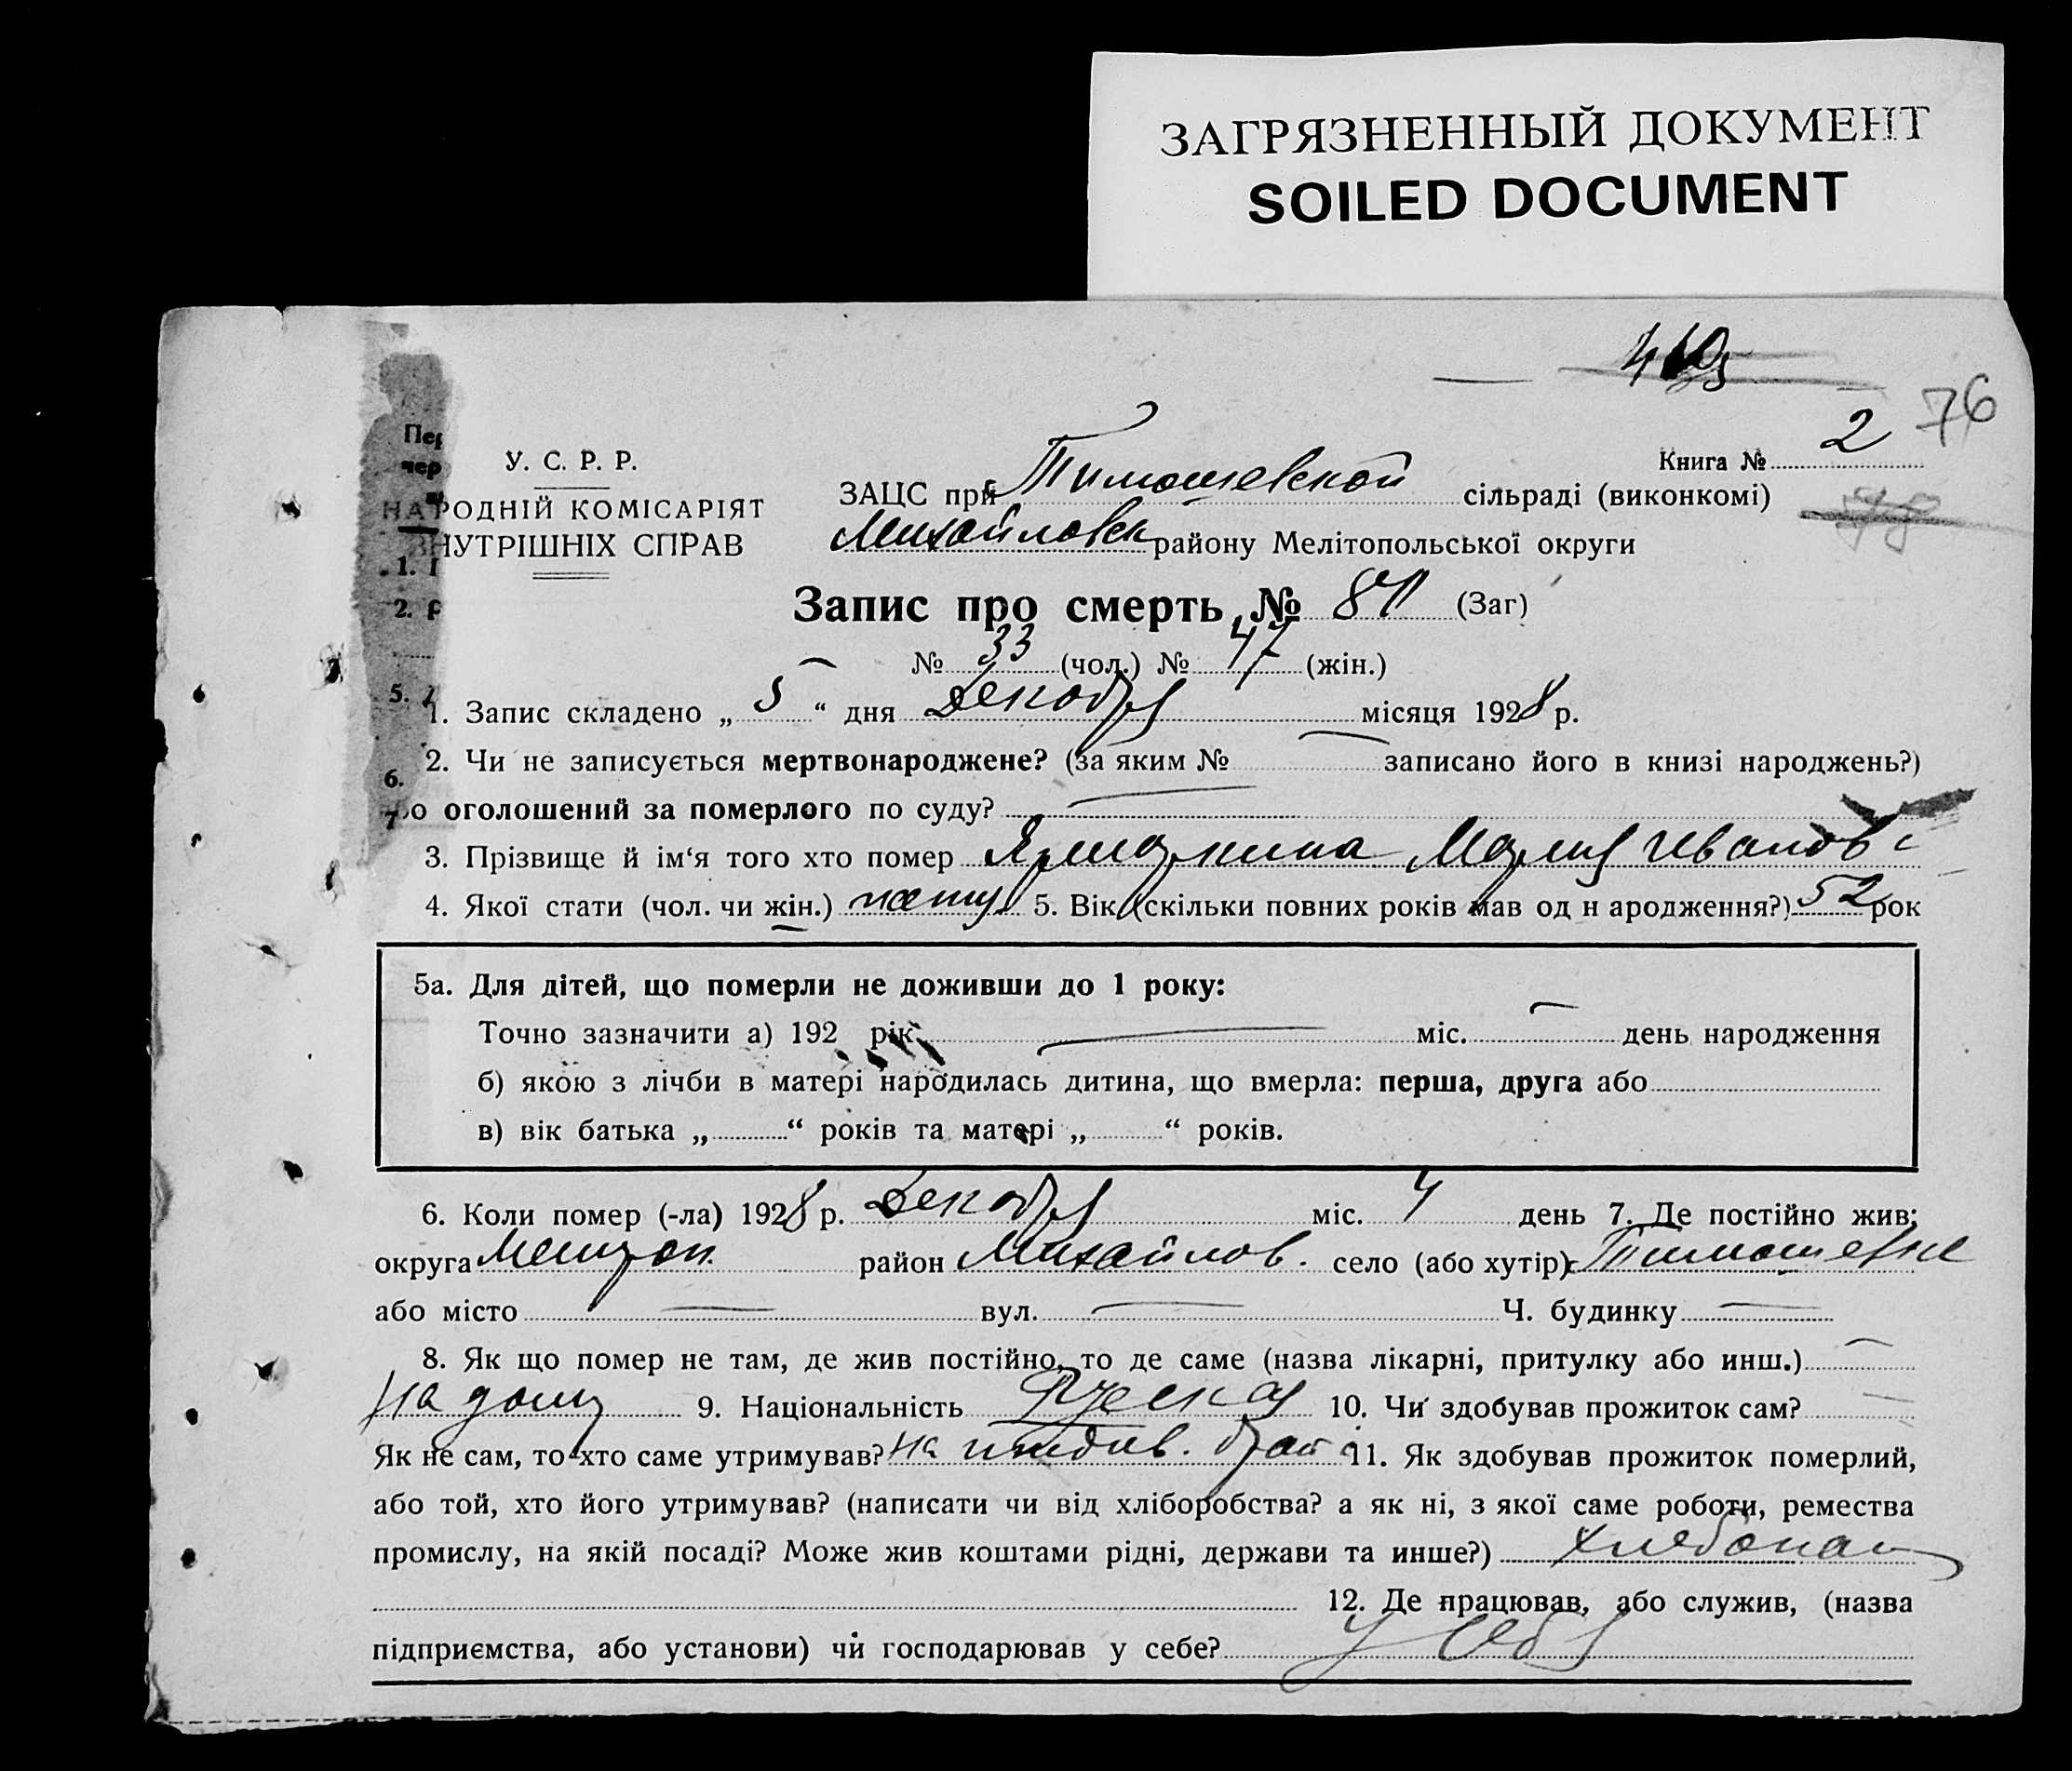 ЗАГРЯЗНЕННЫЙ ДОКУМЕНТ
SOILED DOCUMENT
76
Книга № 2
У. С. Р. Р.
НАРОДНІЙ КОМІСАРІЯТ
ВНУТРІШНІХ СПРАВ
ЗАЦС при Тимошевской сільраді (виконкомі)
Михайловск району Мелітопольської округи
Запис про смерть № (Заг)
№ 33 (чол.) № 47 (жін.)
1. Запис складено „ 5 “ дня Декабря місяця 1928 р.
2. Чи не записується мертвонароджене? (за яким № записано його в книзі народжень?)
оголошений за померлого по суду?
3. Прізвище й ім‘я того хто помер Мария Иванов
4. Якої стати (чол. чи жін.) 5. Вік (скільки повних років мав од н ародження?) 52 рок
5а. Для дітей, що померли не доживши до 1 року:
Точно зазначити а) 192 рік міс. день народження
б) якою з лічби в матері народилась дитина, що вмерла: перша, друга або
в) вік батька „ “ років та матері „ “ років.
6. Коли помер (-ла) 1928 р. Декабря міс. 4 день 7. Де постійно жив:
округа район Михайлов. село (або хутір) Тимошевке
або місто вул. Ч. будинку
8. Як що помер не там, де жив постійно, то де саме (назва лікарні, притулку або инш.)
На дому 9. Національність Русская 10. Чи здобував прожиток сам?
Як не сам, то хто саме утримував? На иждив. 11. Як здобував прожиток померлий,
або той, хто його утримував? (написати чи від хліборобства? а як ні, з якої саме роботи, ремества
промислу, на якій посаді? Може жив коштами рідні, держави та инше?) Хлебопаш
12. Де працював, або служив, (назва
підприємства, або установи) чи господарював у себе? У себя